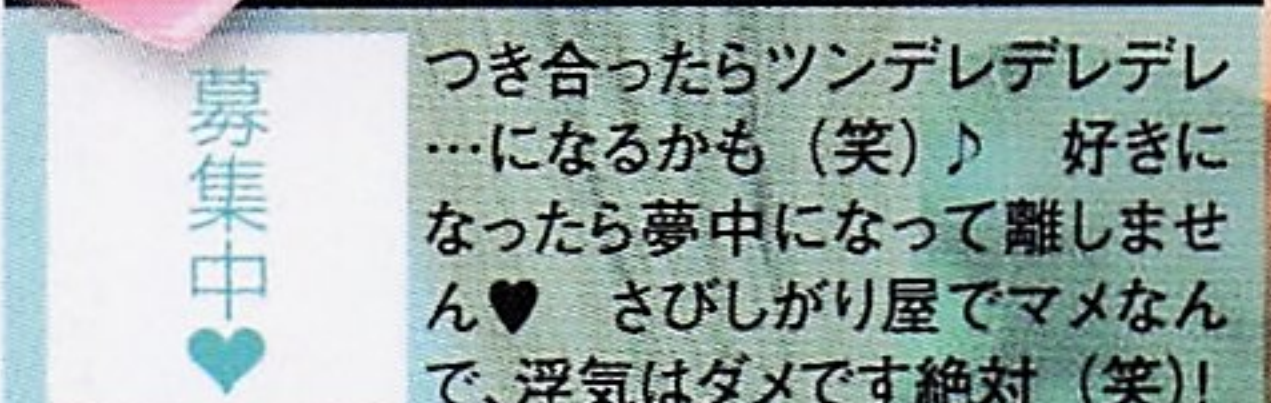 募集中♥
つき合ったらツンデレデレデレ
…になるかも（笑）♪　好きに
なったら夢中になって離しませ
ん♥　さびしがり屋でマメなん
で、浮気はダメです絶対（笑）！